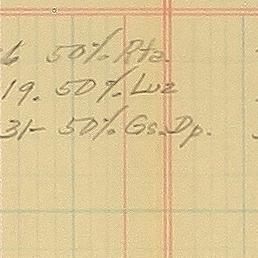 6 50% Rta.
19. 50% Luz
31- 50% Gs.Dp.